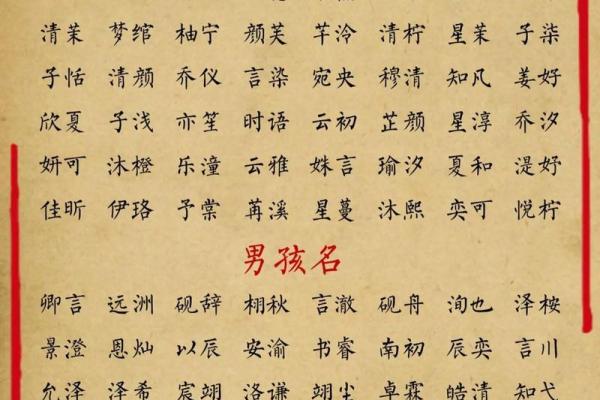 清茉 梦绾 柚宁 颜芙 芊泠 清柠 星茉 子柒
子恬 清颜 乔仪 言染 宛央 穆清 知凡 姜好
欣夏 子浅 亦笙 时语 云初 芷颜 星淳 乔汐
妍可 沐橙 乐潼 云雅 姝言 瑜汐 夏和 湜妤
佳昕 伊珞 予棠 苒溪 星蔓 沐熙 奕可 悦柠
男孩名
卿言 远洲 砚辞 栩秋 言澈 砚舟 洵也 泽桉
景澄 恩灿 以辰 安渝 书睿 南初 辰奕 言川
允泽 泽希 宸翊 洛谦 翊尘 卓霖 皓清 知弋